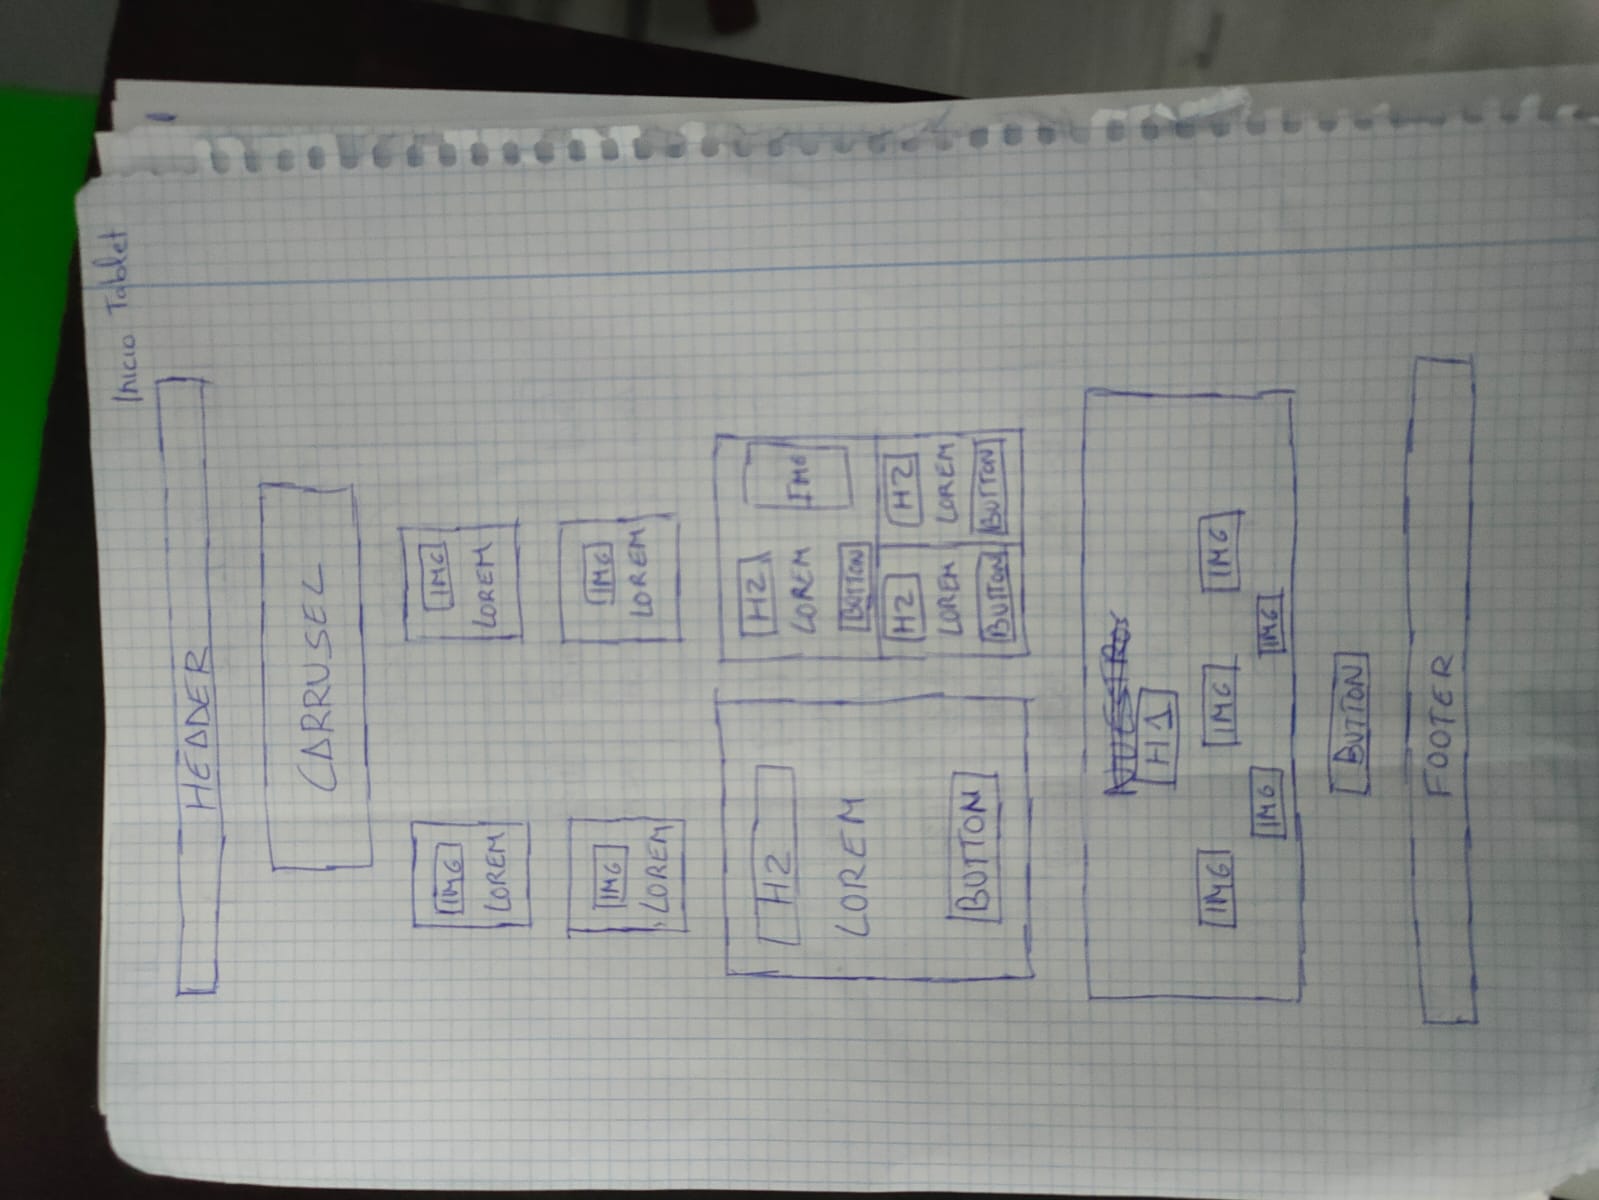 Inicio Tablet
HEADER
CARRUSEL
IMG
LOREM
IMG
LOREM
IMG
LOREM
IMG
LOREM
H2
LOREM
BUTTON
H2
LOREM
BUTTON
IMG
H2
LOREM
BUTTON
H2
LOREM
BUTTON
H1
IMG IMG IMG
IMG IMG
BUTTON
FOOTER